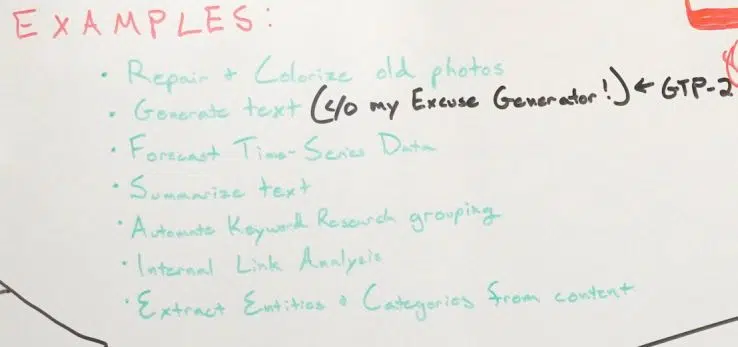 EXAMPLES:
• Repair + Colorize old photos
• Generate text (c/o my Excuse Generator!) ← GTP-2
• Forecast Time-Series Data
• Summarize text
• Automate Keyword Research grouping
• Internal Link Analysis
• Extract Entities & Categories from content